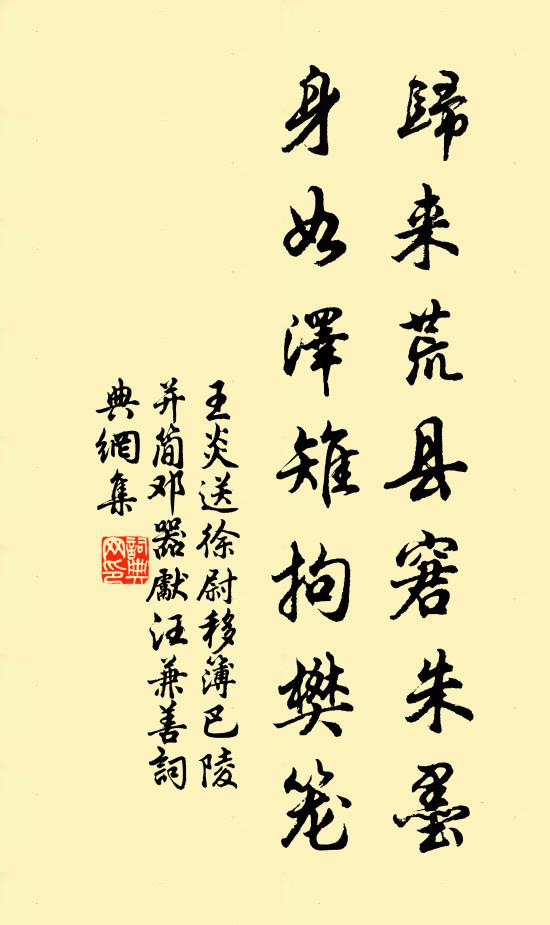 歸来荒县窘朱墨
身如澤雉拘樊笼
王炎送徐尉移簿巴陵
并简邓器獻汪兼善詞
典網集
詞典
网印